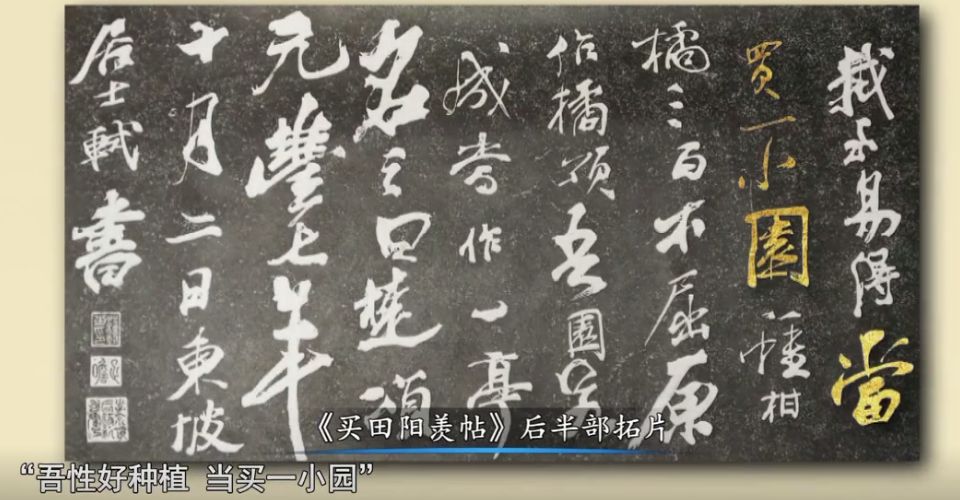 栽至易得當
買一小園種柑
橘三百本屈原
作橘頌吾園若
成當作一亭
名之曰楚頌
元豐七年
十月二日東坡
居士軾書
《买田阳羡帖》后半部拓片
“吾性好种植 当买一小园”